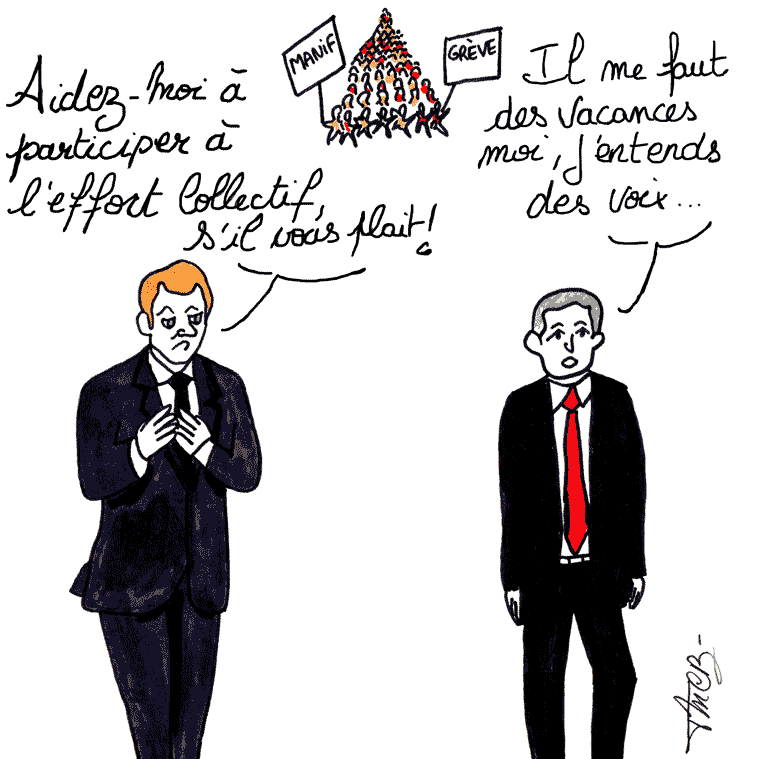 MANIF
GRÈVE
Aidez-moi à
participer à
l'effort collectif,
s'il vous plait!
Il me faut
des vacances
moi, j'entends
des voix...
AMCB-